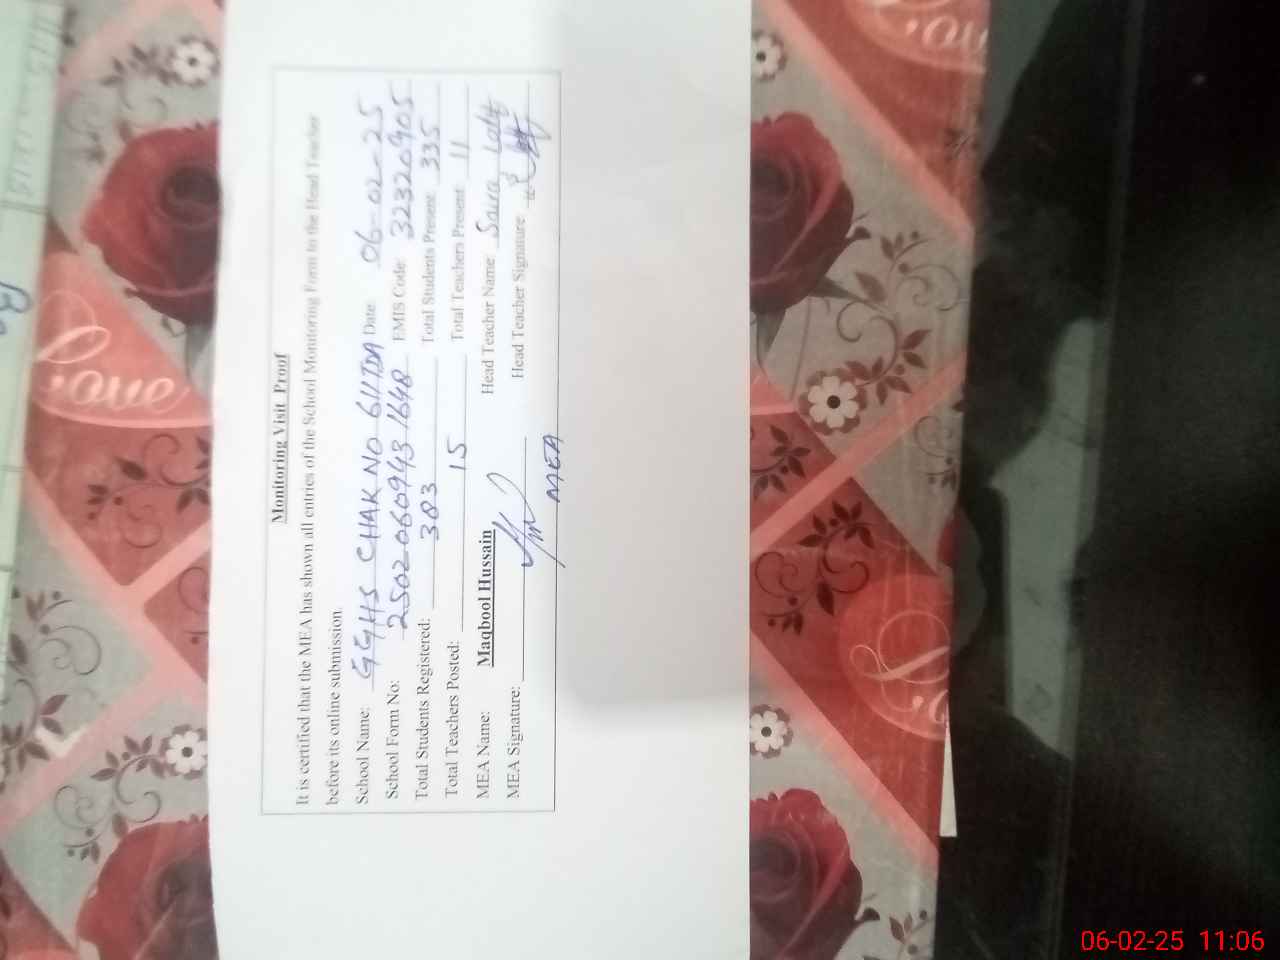 Monitoring Visit Proof
It is certified that the MEA has shown all entries of the School Monitoring Form to the Head Teacher
before its online submission.
School Name: GGHS CHAK NO 611TDA Date: 06-02-25
School Form No: 25020609431648 EMIS Code: 32320905
Total Students Registered: 383 Total Students Present: 335
Total Teachers Posted: 15 Total Teachers Present: 11
MEA Name: Maqbool Hussain Head Teacher Name
MEA Signature: Head Teacher Signature
MEA
Love
06-02-25 11:06